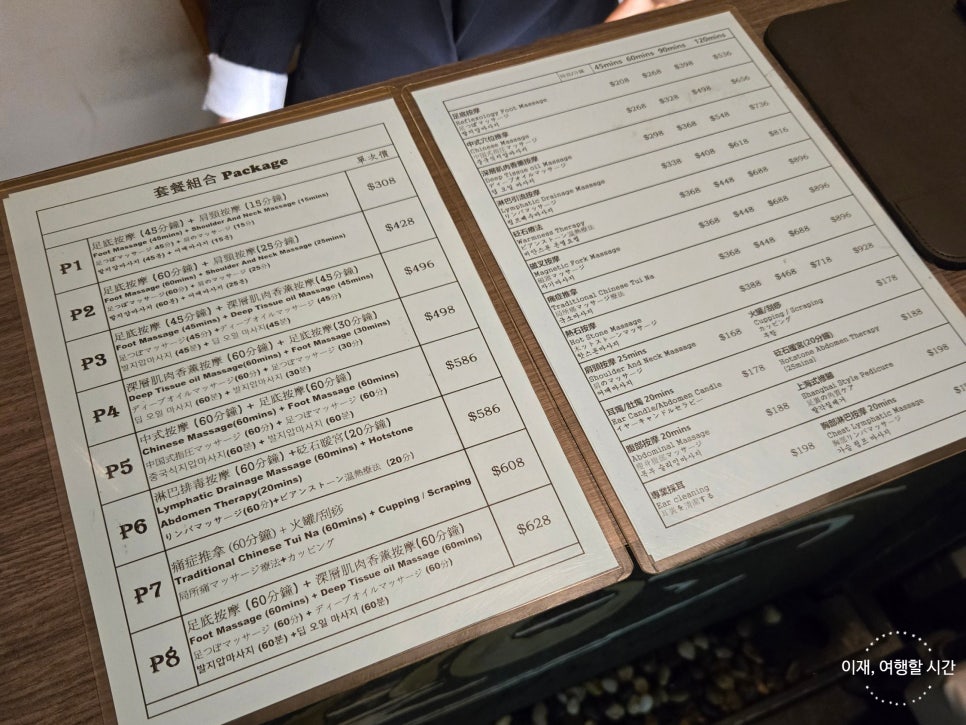 套餐組合 Package
單次價
P1
足底按摩 (45分鐘) + 肩頸按摩 (15分鐘)
Foot Massage (45mins) + Shoulder And Neck Massage (15mins)
足つぼマッサージ 45分) + 肩のマッサージ (15分)
발지압마사지 (45분) + 어깨마사지 (15분)
$308
P2
足底按摩 (60分鐘) + 肩頸按摩(25分鐘)
Foot Massage (60mins) + Shoulder And Neck Massage (25mins)
足つぼマッサージ (60分) + 肩のマッサージ (25分)
발지압마사지 (60분) + 어깨마사지 (25분)
$428
P3
足底按摩 (45分鐘) + 深層肌肉香薰按摩(45分鐘)
Foot Massage (45mins) + Deep Tissue oil Massage (45mins)
足つぼマッサージ (45分) +ディープオイルマッサージ (45分)
발지압마사지 (45분) + 딥 오일 마사지(45분)
$496
P4
深層肌肉香薰按摩 (60分鐘) + 足底按摩(30分鐘)
Deep Tissue oil Massage(60mins) + Foot Massage (30mins)
ディープオイルマッサージ(60分) + 足つぼマッサージ (30分)
딥 오일 마사지 (60분) + 발지압마사지 (30분)
$498
P5
中式按摩 (60分鐘) + 足底按摩(60分鐘)
Chinese Massage(60mins) + Foot Massage (60mins)
中国式指圧マッサージ (60分) + 足つぼマッサージ (60分)
중국식지압마사지(60분) + 발지압마사지 (60분)
$586
P6
淋巴排毒按摩 (60分鐘) +砭石暖宮(20分鐘)
Lymphatic Drainage Massage (60mins) + Hotstone
Abdomen Therapy(20mins)
リンパマッサージ(60分)+ビアンストーン温熱療法 (20分)
$586
P7
痛症推拿 (60分鐘) + 火罐/刮痧
Traditional Chinese Tui Na (60mins) + Cupping / Scraping
局所痛マッサージ療法+カッピング
$608
P8
足底按摩 (60分鐘) + 深層肌肉香薰按摩(60分鐘)
Foot Massage (60mins) + Deep Tissue oil Massage (60mins)
足つぼマッサージ (60分) + ディープオイルマッサージ (60分)
발지압마사지 (60분) +딥 오일 마사지 (60분)
$628
45mins 60mins 90mins 120mins
足底按摩
Reflexology Foot Massage
足つぼマッサージ
발지압마사지
$208 $268 $398 $536
中式穴位推拿
Chinese Massage
中国式指圧マッサージ
중국식지압마사지
$268 $328 $498 $656
深層肌肉香薰按摩
Deep Tissue oil Massage
ディープオイルマッサージ
딥 오일 마사지
$298 $368 $548 $736
淋巴引流按摩
Lymphatic Drainage Massage
リンパマッサージ
$338 $408 $618 $816
砭石療法
Warmness Therapy
ビアンストーン温熱療法
$368 $448 $688 $896
磁叉按摩
Magnetic Fork Massage
$368 $448 $688 $896
痛症推拿
Traditional Chinese Tui Na
局所痛マッサージ療法
$368 $448 $688 $896
熱石按摩
Hot Stone Massage
ホットストーンマッサージ
핫스톤마사지
$388 $468 $718 $928
肩頸按摩 25mins
Shoulder And Neck Massage
肩のマッサージ
어깨마사지
$168
火罐/刮痧
Cupping / Scraping
カッピング
부항
$178
耳燭/肚燭 20mins
Ear Candle/Abdomen Candle
イヤーキャンドルセラピー
$178
砭石暖宮(20分鐘)
Hotstone Abdomen Therapy
(25mins)
$188
腹部按摩 20mins
Abdominal Massage
$188
上海式修腳
Shanghai Style Pedicure
足裏の角質ケア
발각질제거
$198
專業採耳
Ear cleaning
耳裏を清潔する
$198
胸部淋巴按摩 20mins
Chest Lymphatic Massage
胸部リンパマッサージ
가슴 림프 마사지
이재, 여행할 시간